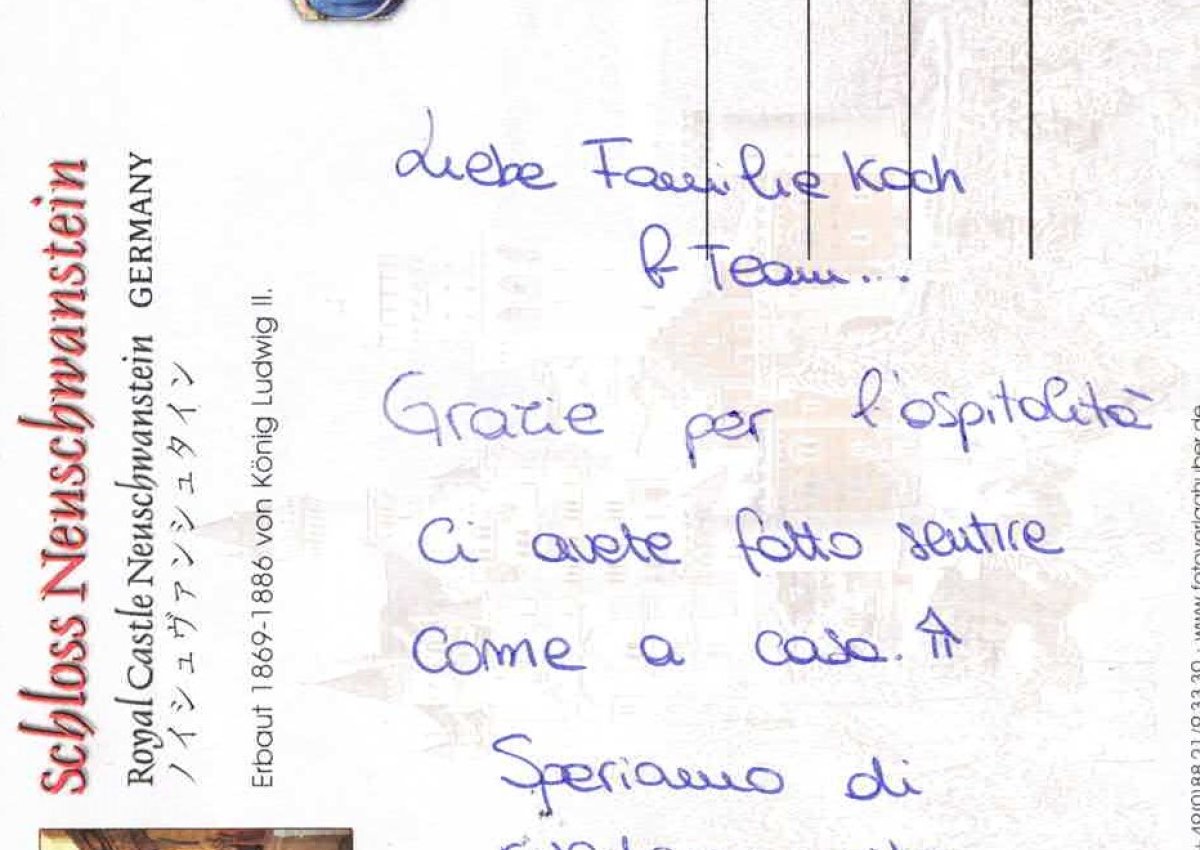 Schloss Neuschwanstein
Royal Castle Neuschwanstein GERMANY
ノイシュヴァンシュタイン
Erbaut 1869-1886 von König Ludwig II.
Liebe Familie Koch
& Team...
Grazie per l'ospitalità
Ci avete fatto sentire
come a casa.
Speriamo di
www.fotoverlaghuber.de